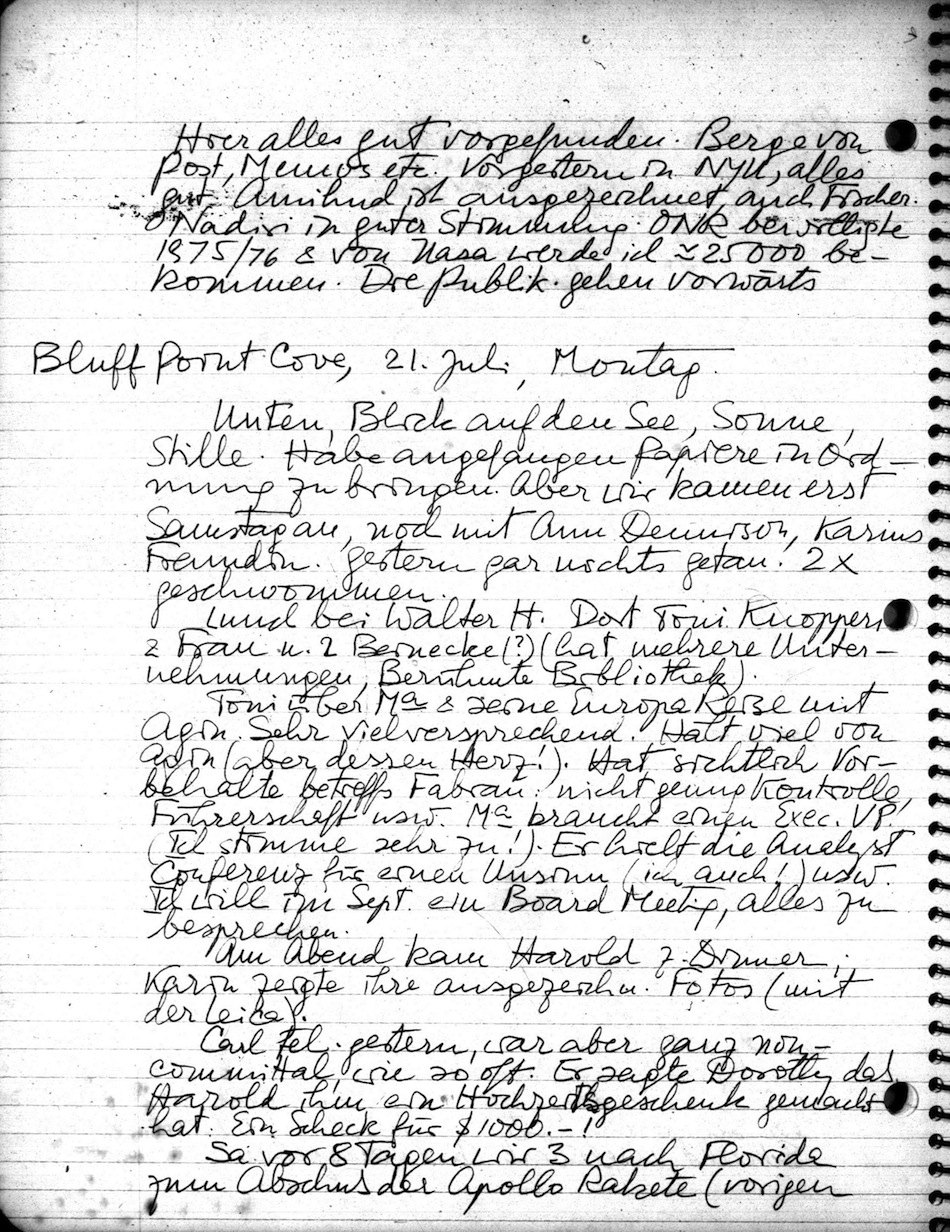 Hier alles gut vorgefunden. Berge von
Post, Memos etc. Vorgestern in NYU, alles
gut. Amihud ist ausgezeichnet, auch Fischer.
Nadiri in guter Stimmung. ONR bewilligte
1975/76 & von Nasa werde ich ≈ 25000 be-
kommen. Die Publik. gehen vorwärts
Bluff Point Cove, 21. Juli, Montag.
Unten, Blick auf den See, Sonne,
Stille. Habe angefangen Papiere in Ord-
nung zu bringen. Aber wir kamen erst
Samstag an, noch mit Ann Dennison, Karins
Freundin. Gestern gar nichts getan. 2 x
geschwommen.
Lunch bei Walter H. Dort Toni Knoppers
& Frau u. 2 Bernecke (?) (hat mehrere Unter-
nehmungen, Berühmte Bibliothek).
Toni über Ma & seine Europa Reise mit
Agin. Sehr vielversprechend. Hält viel von
Agin (aber dessen Herz!). Hat sichtlich Vor-
behalte betreffs Fabian: nicht genug Kontrolle,
Führerschaft usw. Ma braucht einen Exec. VP.
(Ich stimme sehr zu!). Er hielt die Analyst
Conferenz für einen Unsinn (ich auch!) usw.
Ich will im Sept. ein Board Meeting, alles zu
besprechen.
Am Abend kam Harold z. Dinner;
Karin zeigte ihre ausgezeichn. Fotos (mit
der Leica).
Carl tel. gestern, war aber ganz non-
committal, wie so oft. Er sagte Dorothy dass
Harold ihm ein Hochzeitsgeschenk gemacht
hat. Ein Scheck für $ 1000.-!
Sa vor 8 Tagen wir 3 nach Florida
zum Abschuss der Apollo Rakete (vorigen